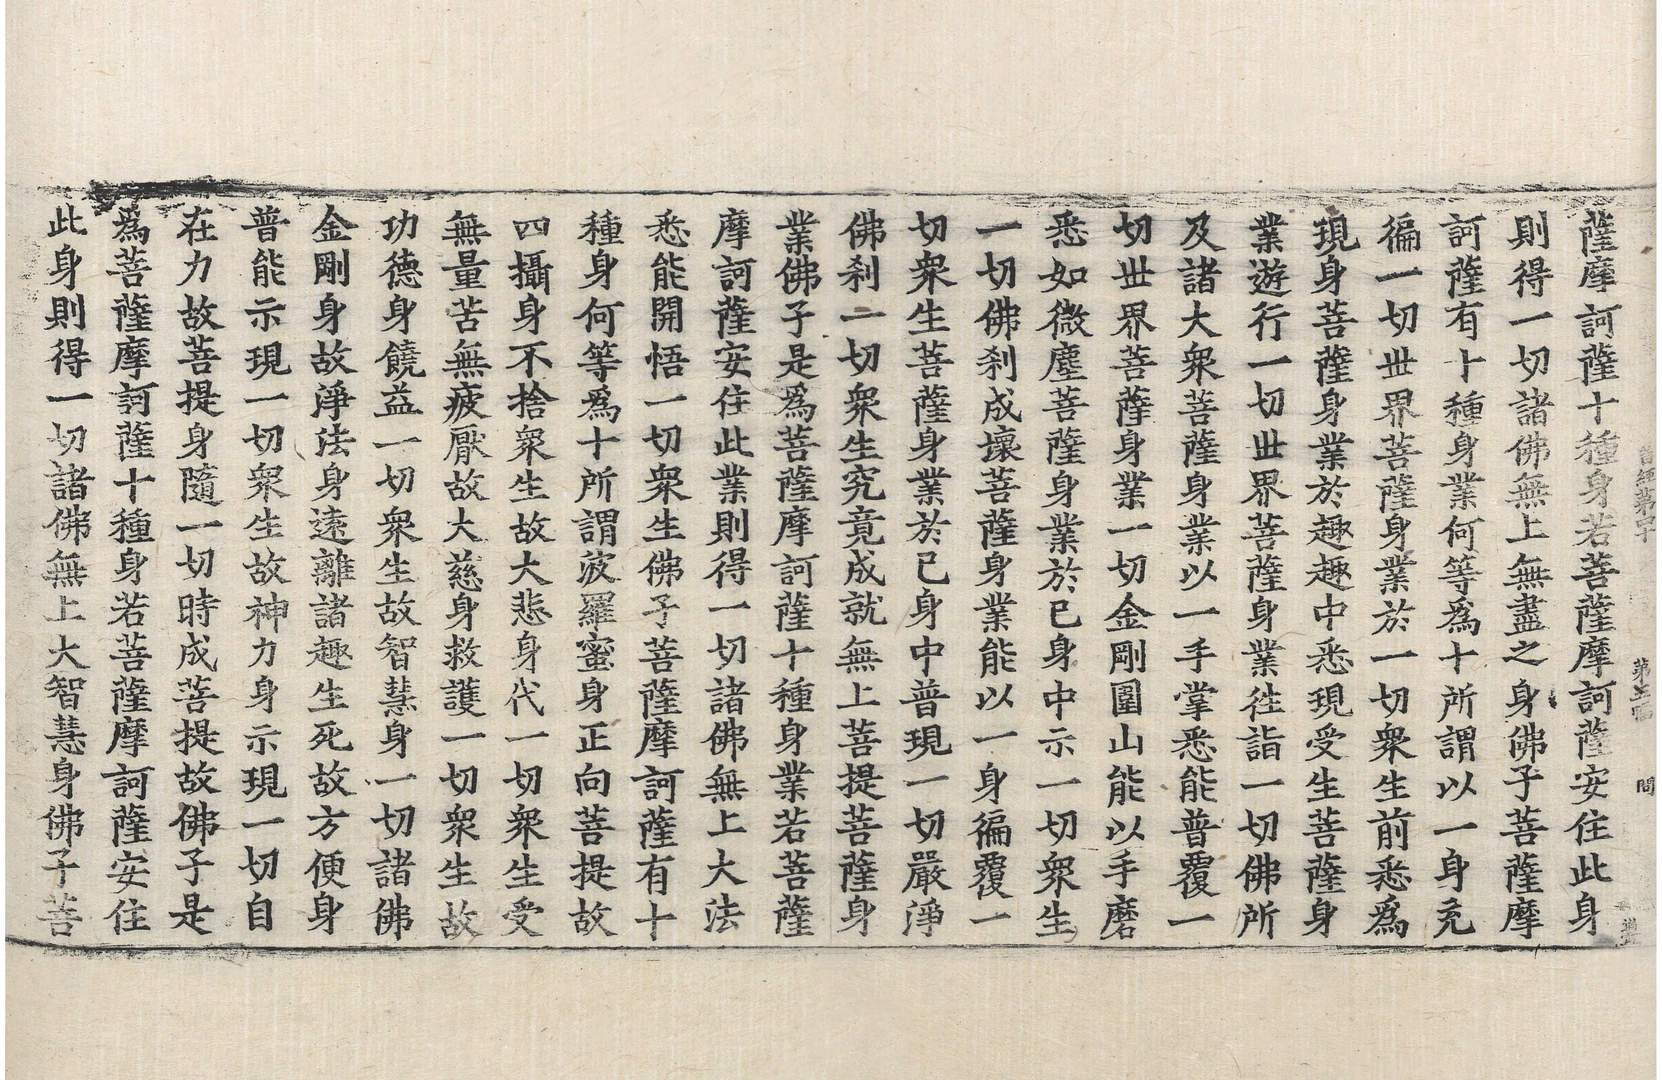 薩摩訶薩十種身若菩薩摩訶薩安住此身
則得一切諸佛無上無盡之身佛子菩薩摩
訶薩有十種身業何等為十所謂以一身充
徧一切世界菩薩身業於一切衆生前悉為
現身菩薩身業於趣趣中悉現受生菩薩身
業遊行一切世界菩薩身業往詣一切佛所
及諸大衆菩薩身業以一手掌悉能普覆一
切世界菩薩身業一切金剛圍山能以手磨
悉如微塵菩薩身業於已身中示一切衆生
一切佛刹成壞菩薩身業能以一身徧覆一
切衆生菩薩身業於已身中普現一切嚴淨
佛刹一切衆生究竟成就無上菩提菩薩身
業佛子是為菩薩摩訶薩十種身業若菩薩
摩訶薩安住此業則得一切諸佛無上大法
悉能開悟一切衆生佛子菩薩摩訶薩有十
種身何等為十所謂波羅蜜身正向菩提故
四攝身不捨衆生故大悲身代一切衆生受
無量苦無疲厭故大慈身救護一切衆生故
功德身饒益一切衆生故智慧身一切諸佛
金剛身故淨法身遠離諸趣生死故方便身
普能示現一切衆生故神力身示現一切自
在力故菩提身隨一切時成菩提故佛子是
為菩薩摩訶薩十種身若菩薩摩訶薩安住
此身則得一切諸佛無上大智慧身佛子菩